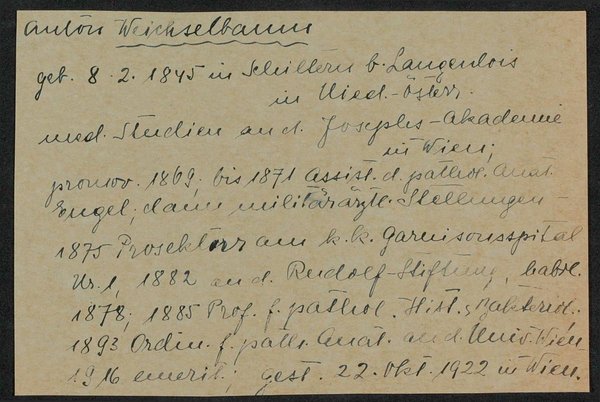 Anton Weichselbaum
geb. 8. 2. 1845 in Schiltern b. Langenlois
in Nied.-Österr.
med. Studien an d. Josephs-Akademie
in Wien;
promov. 1869; bis 1871 Assist. d. pathol. Anat.
Engel, dann militärärztl. Stellungen -
1875 Prosektor am k. k. Garnisonsspital
Nr. 1, 1882 an d. Rudolf-Stiftung, habil.
1878; 1885 Prof. f. pathol. Hist. u. Bakteriol.
1893 Ordin. f. path. Anat. an d. Univ. Wien
1916 emerit.; gest. 22. Okt. 1922 in Wien.